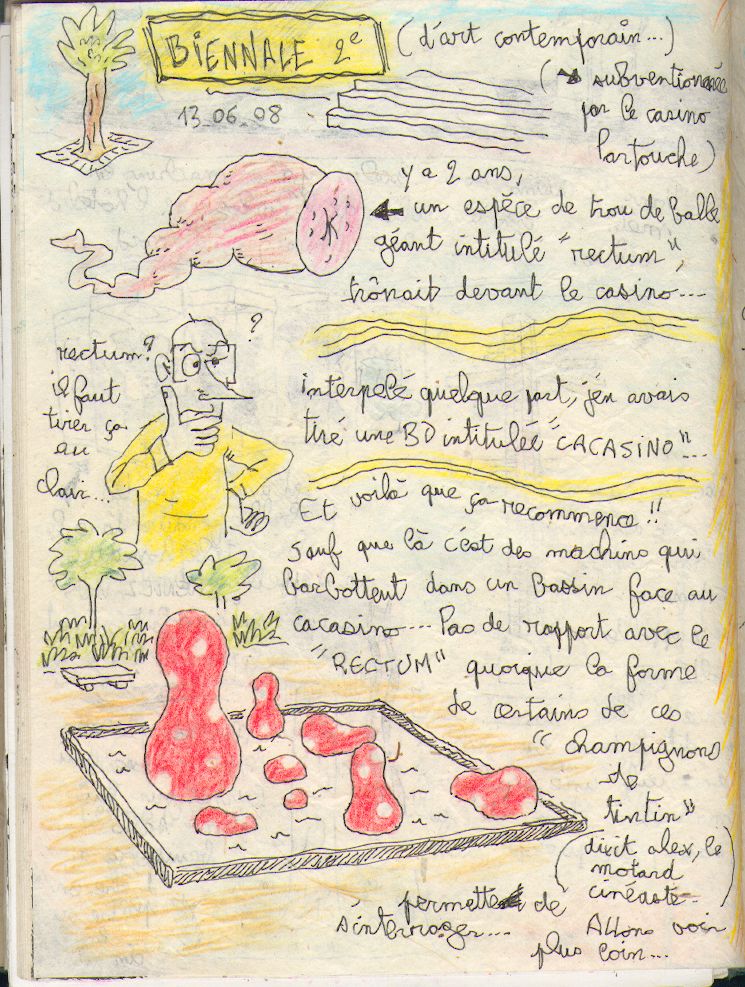 BIENNALE 2e
(d'art contemporain...)
(subventionnée
par le casino
Partouche)
13_06_08
y a 2 ans,
un espèce de trou de balle
géant intitulé "rectum",
trônait devant le casino...
?
rectum?
il faut
tirer ça
au
clair...
interpelé quelque part, j'en avais
tiré une BD intitulée "CACASINO"...
Et voilà que ça recommence!!
sauf que là c'est des machins qui
barbottent dans un bassin face au
cacasino.... Pas de rapport avec le
"RECTUM" quoique la forme
de certains de ces
"champignons
de
tintin"
(dixit alex, le
motard
cinéaste)
permette de
s'interroger....
Allons voir
plus loin...